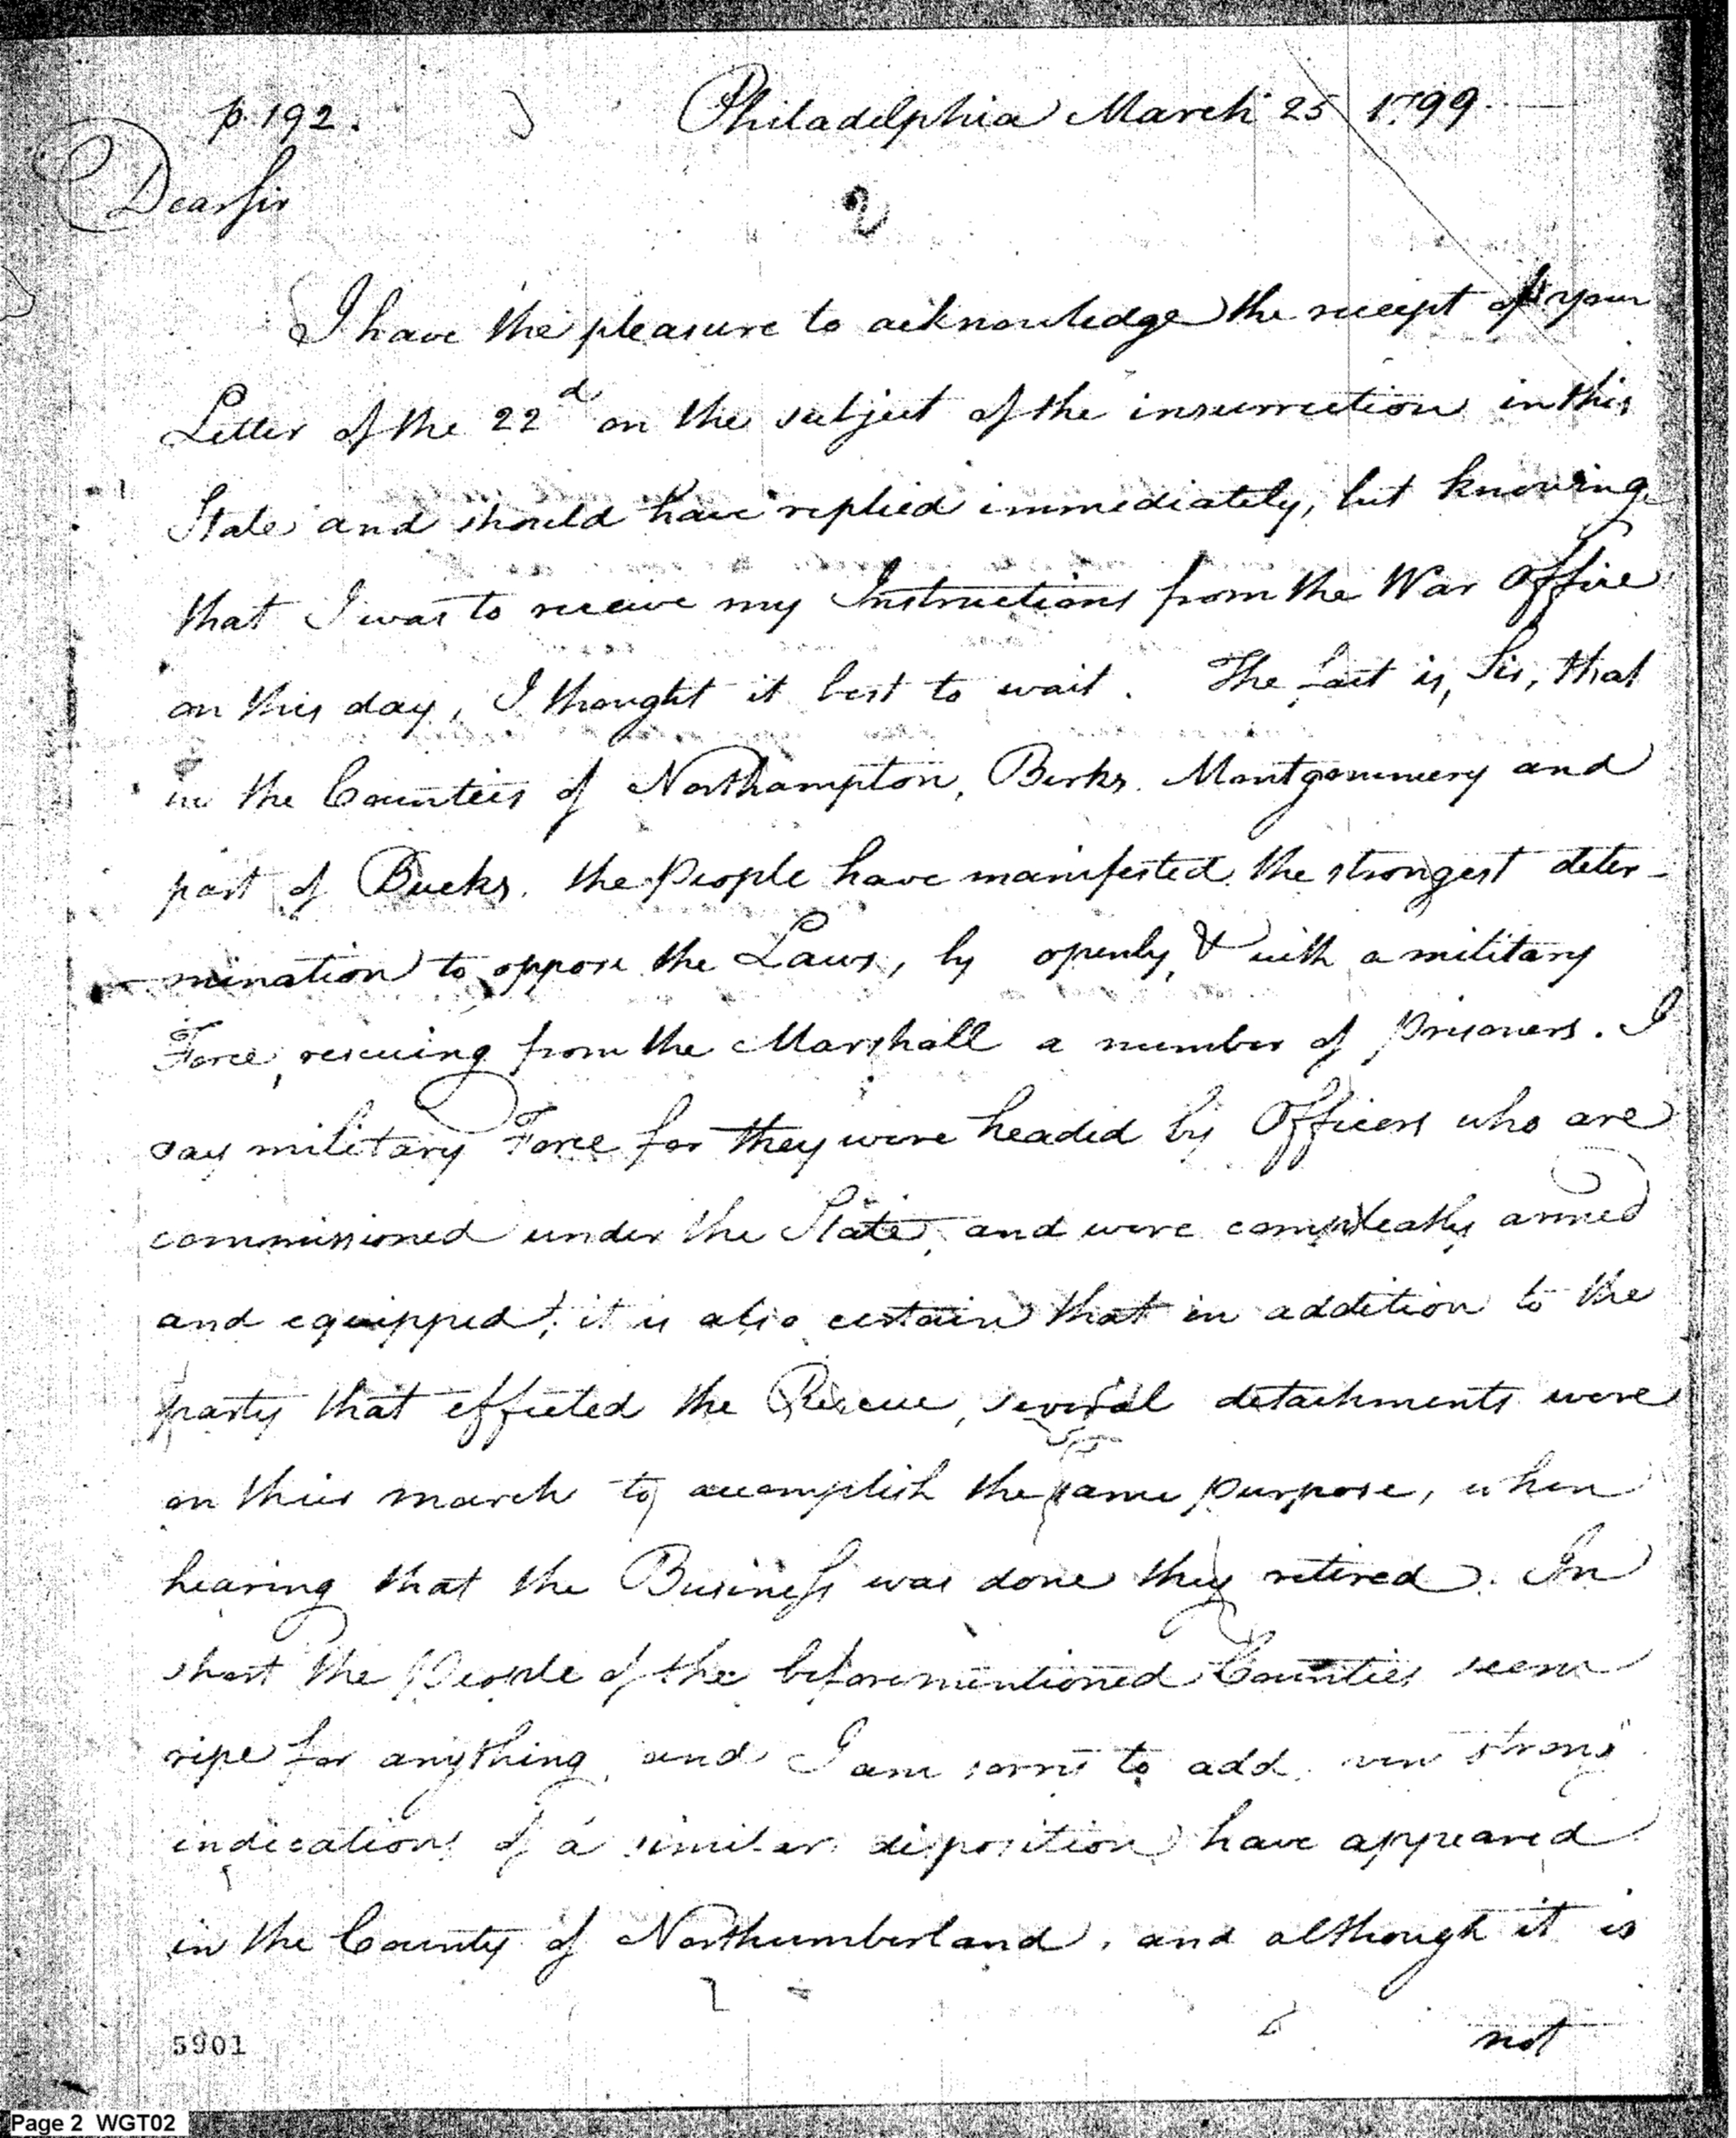 p. 192.
Philadelphia March 25 1799.
Dear Sir
2
I have the pleasure to acknowledge the receipt of your
Letter of the 22d on the subject of the insurrection in this
State and should have replied immediately, but knowing
that I was to receive my Instructions from the War Office
on this day, I thought it best to wait. The fact is, Sir, that
in the Counties of Northampton, Berks, Montgommery and
part of Bucks, the People have manifested the strongest deter-
mination to oppose the Laws, by openly, & with a military
Force, rescuing from the Marshall a number of Prisoners. I
say military Force for they were headed by Officers who are
commissioned under the State, and were compleatly armed
and equipped; it is also certain that in addition to the
party that effected the Rescue, several detachments were
on their march to accomplish the same purpose, when
hearing that the Business was done they retired. In
short the People of the beforementioned Counties seem
ripe for anything, and I am sorry to add, strong
indications of a similar disposition have appeared
in the County of Northumberland, and although it is
not
5901
Page 2 WGT02